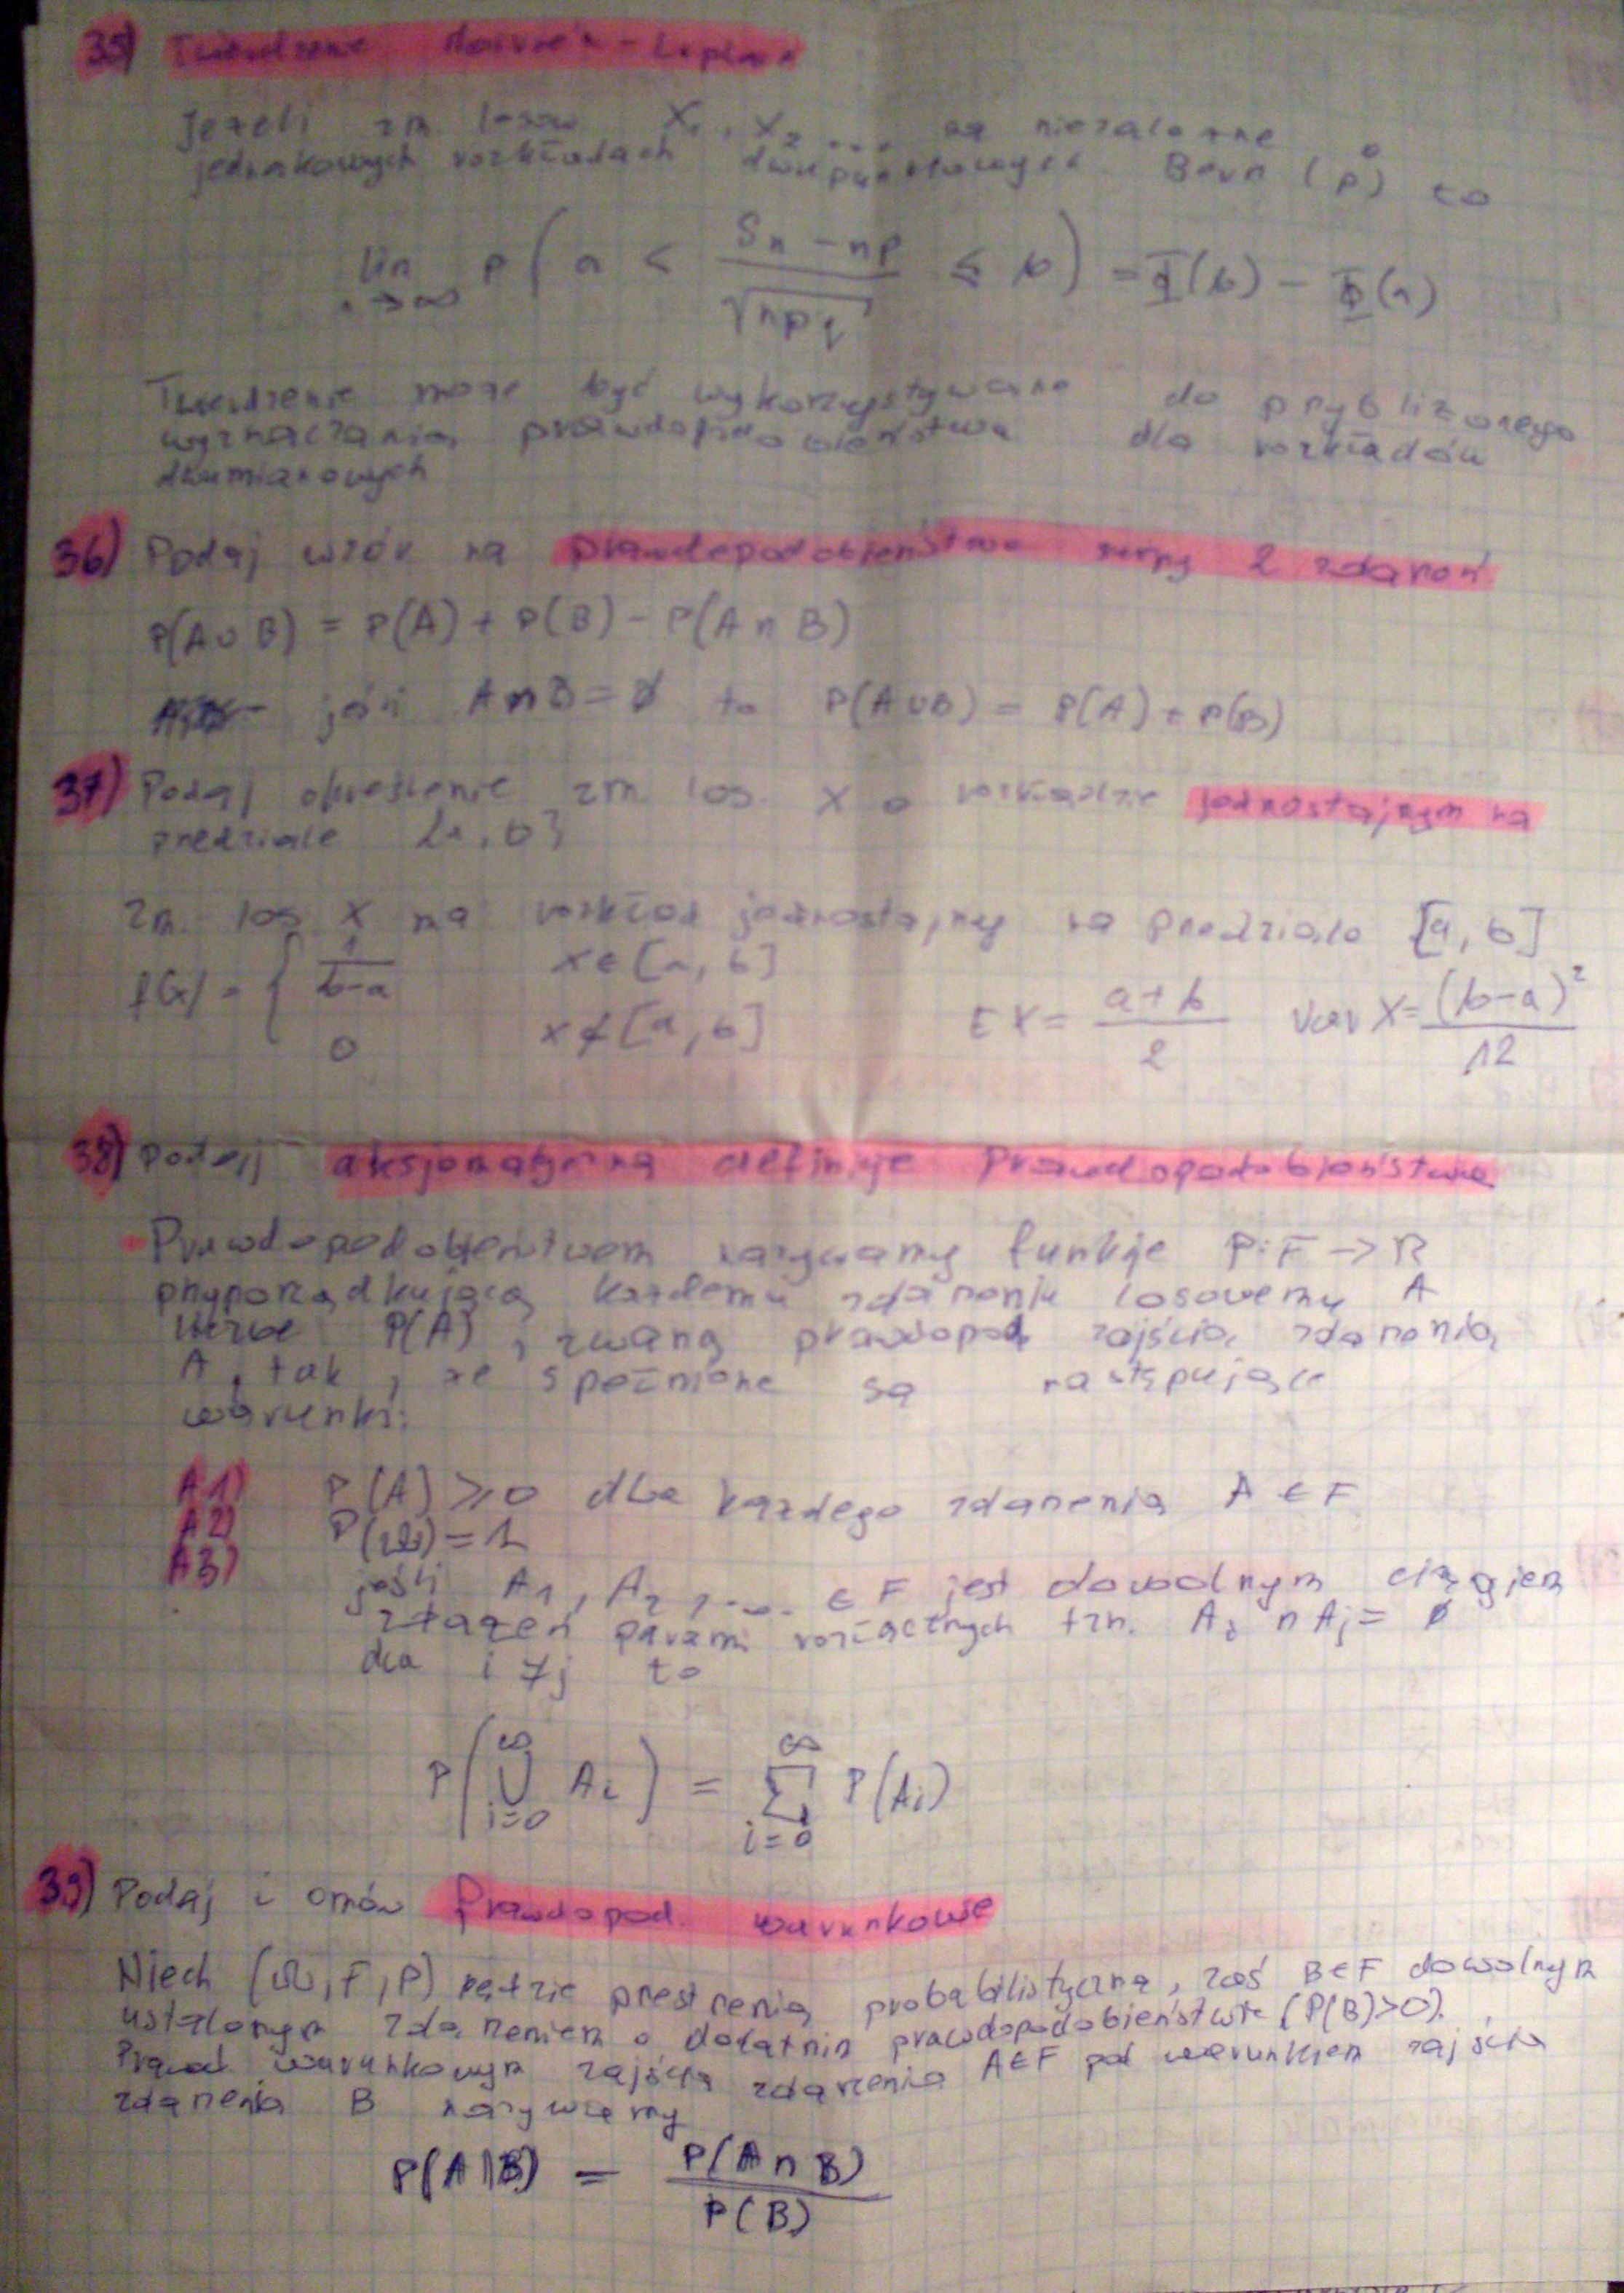 35) Twierdzenie Moivre'a - Laplace'a
jeżeli zm. losow. X₁, X₂ ... są niezależne o
jednakowych rozkładach dwupunktowych Bern (p) to
lim n→∞ P( a < (Sn - np)/√npq ≤ b ) = Φ(b) - Φ(a)
Twierdzenie może być wykorzystywane do przybliżonego
wyznaczania prawdopodobieństwa dla rozkładów
dwumianowych
36) Podaj wzór na prawdopodobieństwo sumy 2 zdarzeń
P(A∪B) = P(A) + P(B) - P(A∩B)
jeśli A∩B = ∅ to P(A∪B) = P(A) + P(B)
37) Podaj określenie zm. los. X o rozkładzie jednostajnym na
przedziale [a, b]
zm. los X ma rozkład jednostajny na przedziale [a, b]
f(x) = { 1/(b-a) x∈[a, b]
0 x∉[a, b] EX = (a+b)/2 Var X = (b-a)²/12
38) Podaj aksjomatyczną definicje prawdopodobieństwa
Prawdopodobieństwem nazywamy funkcje P: F → R
przyporządkującą każdemu zdarzeniu losowemu A
liczbe P(A), zwaną prawdopod. zajścia zdarzenia
A, tak, że spełnione są następujące
warunki:
A1) P(A) ⩾ 0 dla każdego zdarzenia A ∈ F
A2) P(Ω) = 1
A3) jeśli A₁, A₂, ... ∈ F jest dowolnym ciągiem
zdarzeń parami rozłącznych tzn. Ai ∩ Aj = ∅
dla i ≠ j to
P( ⋃ i=0 ∞ Ai ) = ∑ i=0 ∞ P(Ai)
39) Podaj i omów Prawdopod. warunkowe
Niech (Ω, F, P) będzie przestrzenią probabilistyczną, zaś B∈F dowolnym
ustalonym zdarzeniem o dodatnim prawdopodobieństwie (P(B)>0).
Prawd. warunkowym zajścia zdarzenia A∈F pod warunkiem zajścia
zdarzenia B nazywamy
P(A|B) = P(A∩B)/P(B)